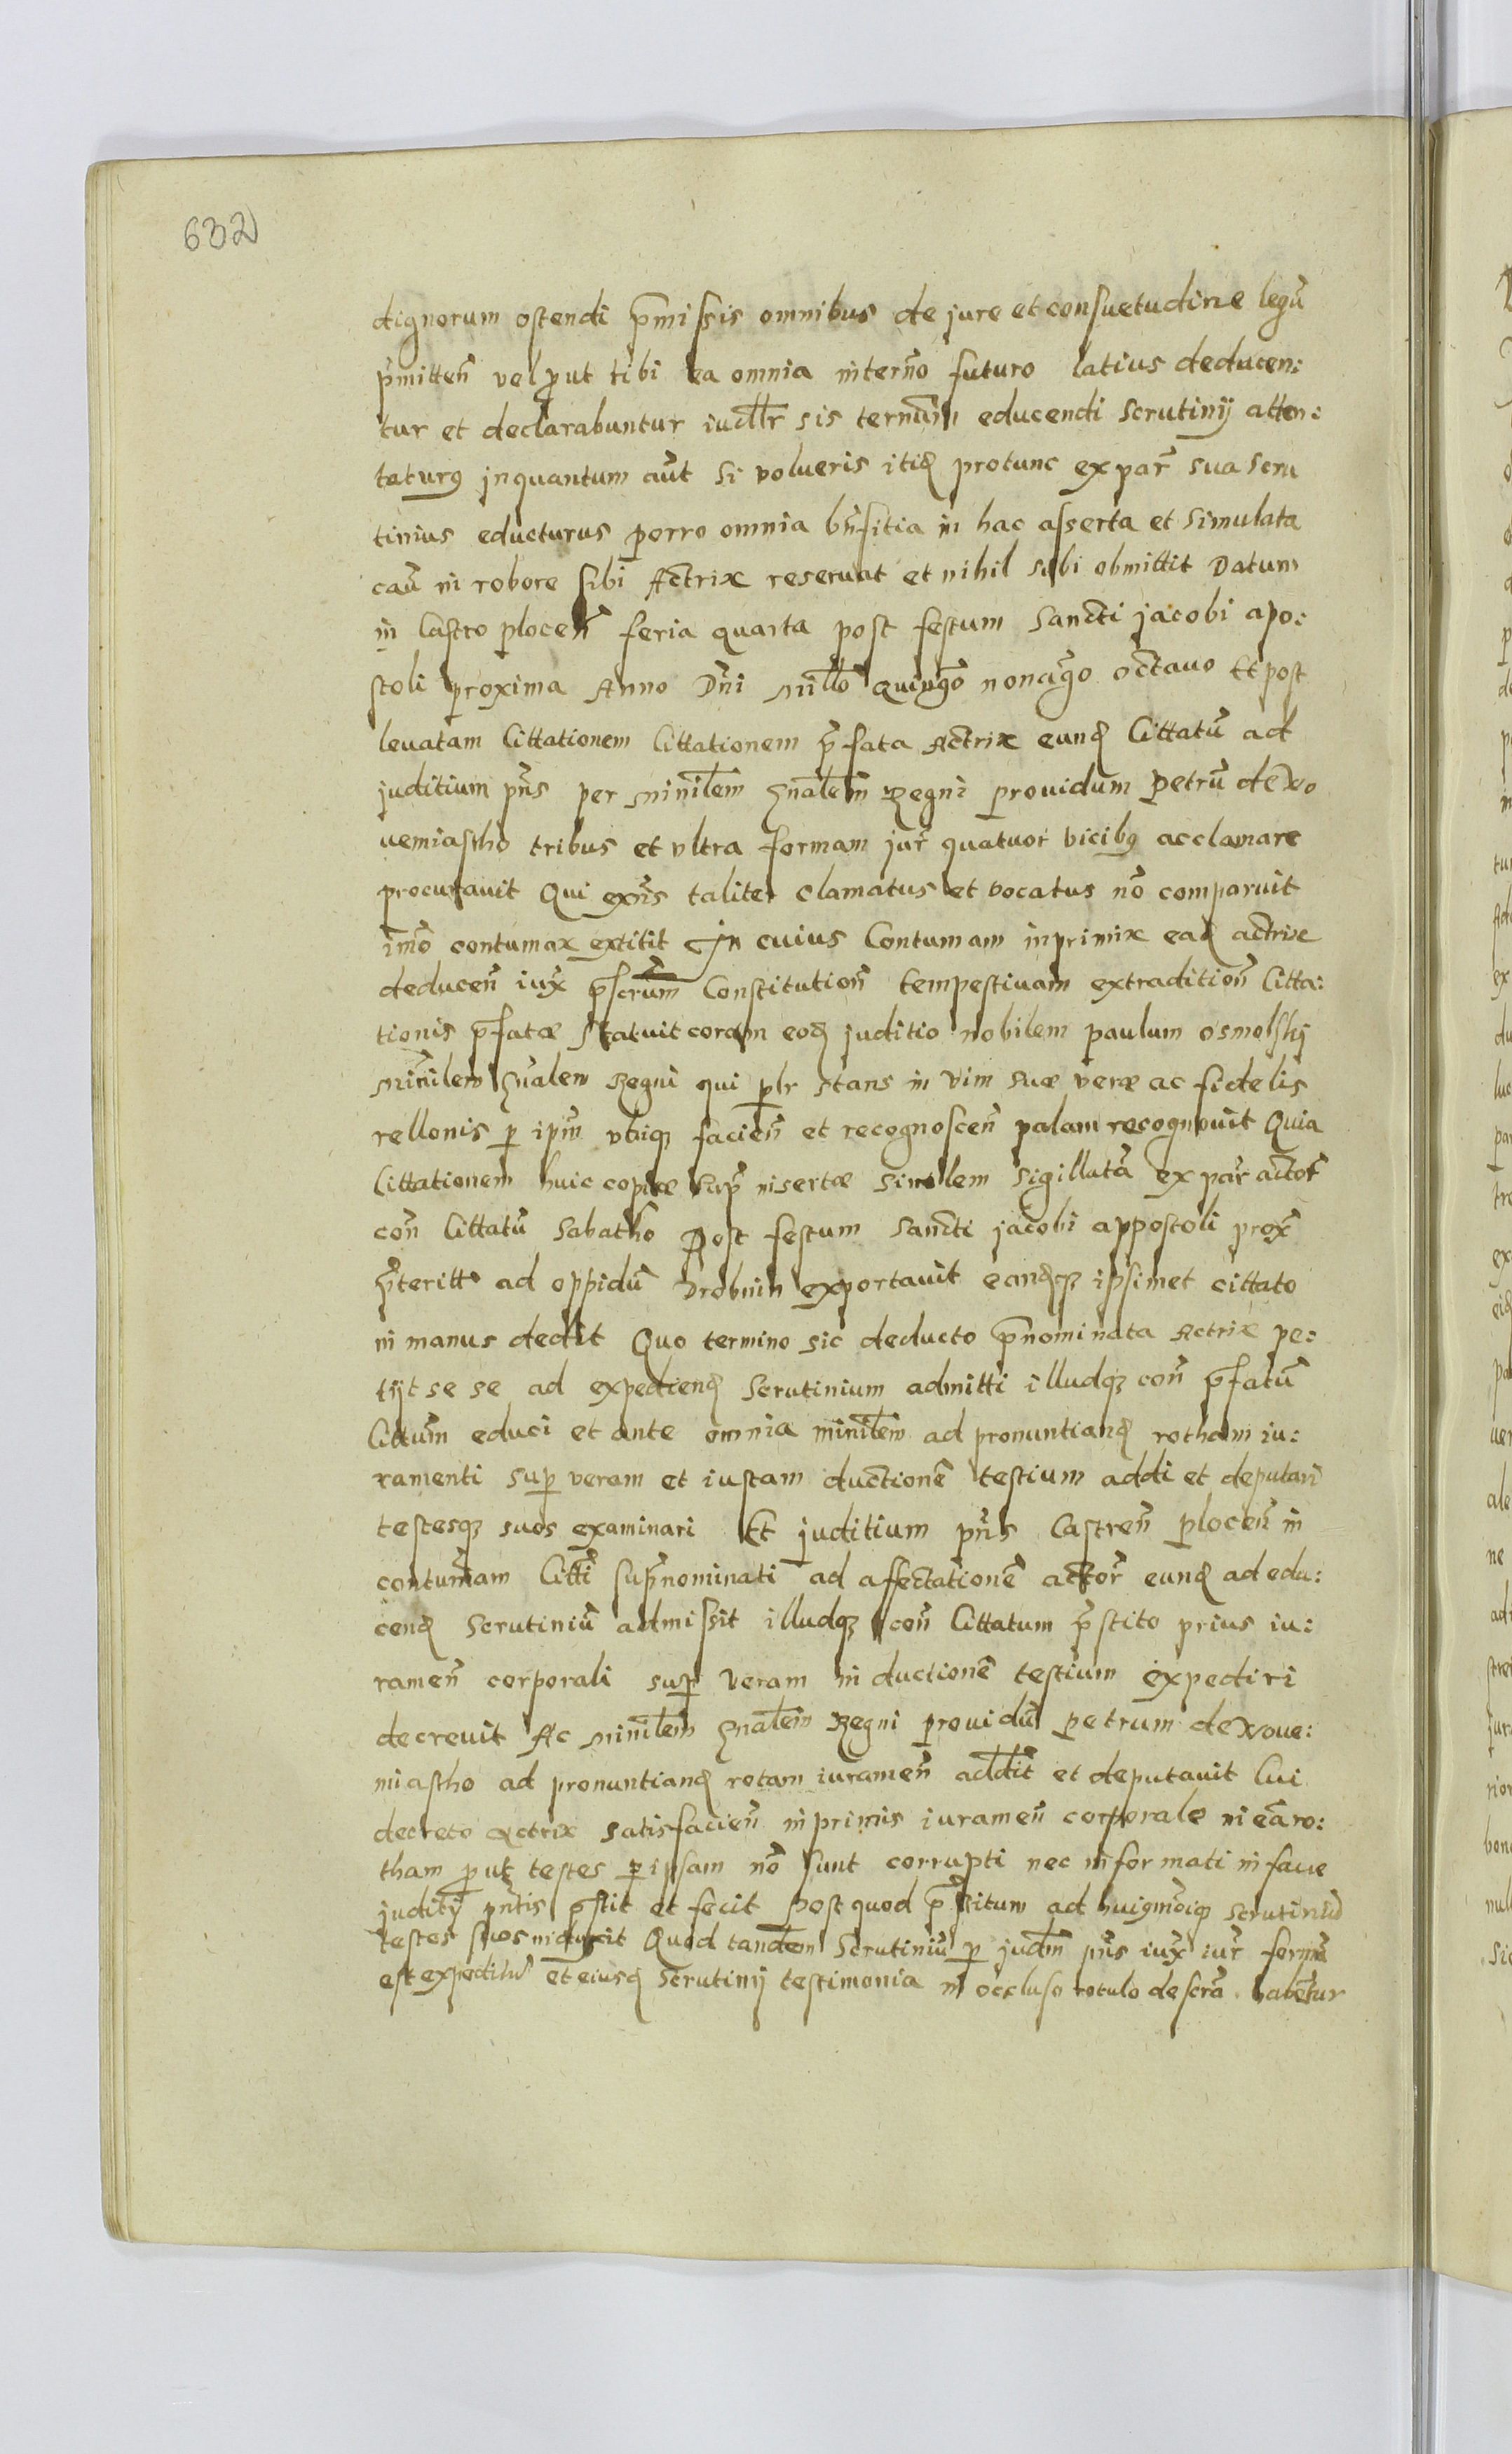 632
dignorum ostendi p̄missis omnibus de jure et consuetudine legū
p̄mitteñ vel prout tibi ea omnia in termo futuro latius deducen:
tur et declarabuntur iudllr sis ternum educendi Scrutinij atten:
taturus inquantum aūt si volueris itid protunc ex par sua scru
tinius educturus porro omnia bñfitia in hac asserta et simulata
caū in robore sibi Actrix reseruat et nihil subi obmittit Datum
in Castro plocen̄ feria quarta post festum Sancti jacobi apo:
stoli proxima Anno Dn̄i millō quingō nonagō octauo Et post
leuatam Cittationem Cittationem p̄fata Actrix eund Cittatū ad
juditium pn̄s per ministlem gn̄alem Regni prouidum Petrū de No
uemiastho tribus et vltra formam jur quatuor vicibus acclamare
procurauit Qui exn̄s taliter clamatus et vocatus nō comparuit
imō contumax extitit In cuius Contumam inprimix ead actrix
deducen̄ iux p̄scrum Constitution̄ tempestiuam extradition̄ Citta:
tionis p̄fatæ statuit coram eod juditio nobilem paulum osmolskj
minilem gn̄alem Regni qui plr stans in vim suæ veræ ac fidelis
rellonis p ipm̄ vbiq facien̄ et recognoscen̄ palam recognouit Quia
Cittationem huic copiæ sup insertæ similem sigillatā ex par actor
con̄ Cittatū Sabatho Post festum Sancti jacobi appostoli prox
p̄teritto ad oppidū Drobnin exportauit eandq ipsimet cittato
in manus dedit Quo termino sic deducto p̄nominata Actrix pe:
tijt se se ad expediend Scrutinium admitti illudq con̄ p̄fatū
Cittum educi et ante omnia minilem ad pronuntiand rotham iu:
ramenti sup veram et iustam ductionē testium addi et deputari
testesq suos examinari Et juditium pn̄s Castren̄ plocen̄ in
contumam Citti supnominati ad affectationē actor eund ad edu:
cend Scrutiniū admissit illudq con̄ Cittatum p̄stito prius iu:
ramen̄ corporali sup veram inductionē testium expediri
decreuit Ac minilem gn̄alem Regni prouidū petrum de Noue:
miastho ad pronuntiand rotam iuramen̄ addit et deputauit Cui
decreto actrix satisfacien̄ inprimis iuramen̄ corporale in eā ro:
tham prout testes p ipsam nō sunt corrupti nec informati in facie
juditij pn̄tis p̄stit et fecit Post quod p̄stitum ad huigmōiq scrutiniū
testes suos induxit Quod tandem Scrutiniū p judm pn̄s iux iur formā
est expeditū et eiusd Scrutinij testimonia in occluso rotulo descra habētur